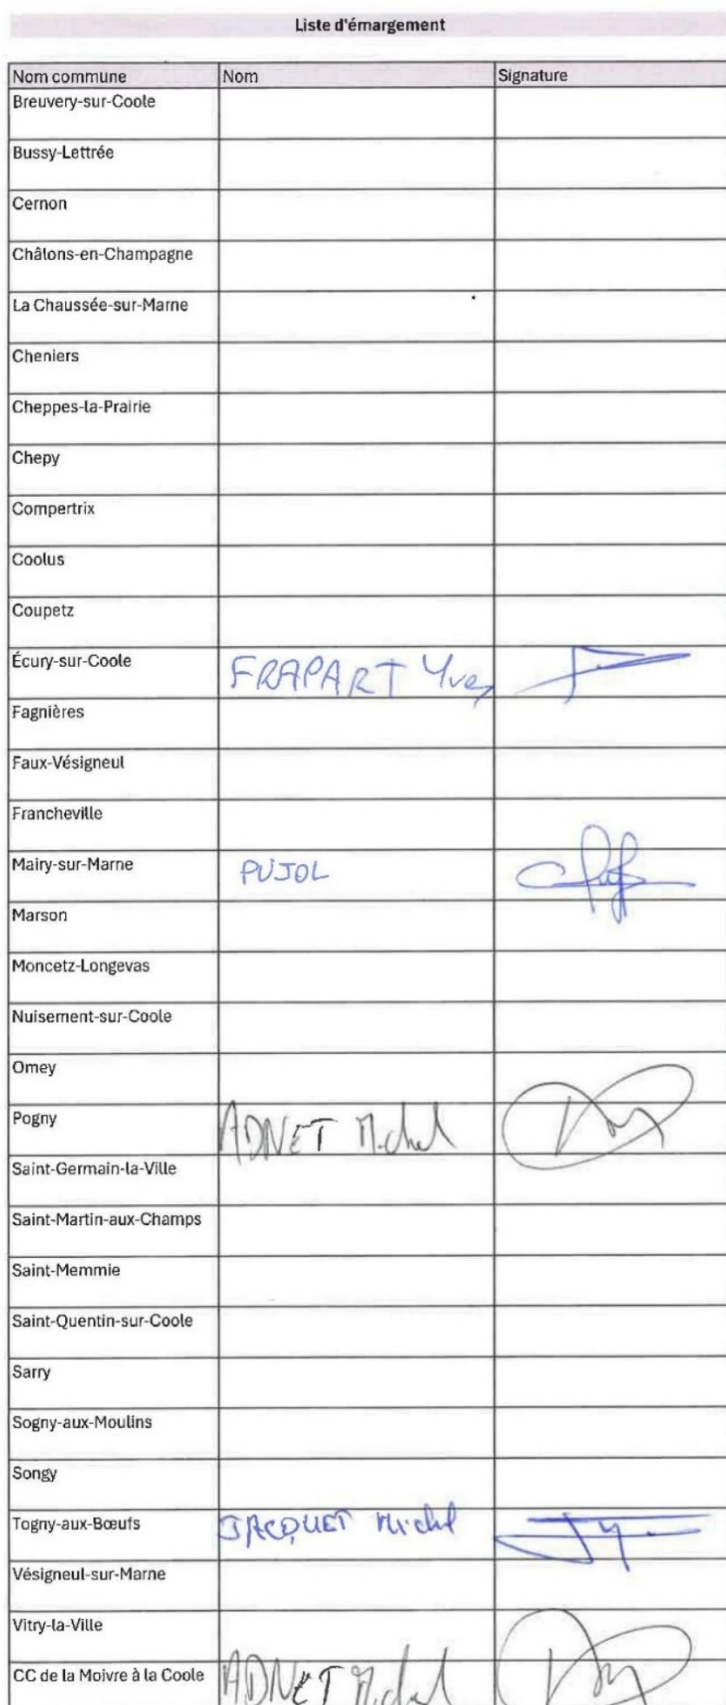 Liste d'émargement
Nom commune Nom Signature
Breuvery-sur-Coole
Bussy-Lettrée
Cernon
Châlons-en-Champagne
La Chaussée-sur-Marne
Cheniers
Cheppes-la-Prairie
Chepy
Compertrix
Coolus
Coupetz
Écury-sur-Coole FRAPART Yves
Fagnières
Faux-Vésigneul
Francheville
Mairy-sur-Marne PUJOL
Marson
Moncetz-Longevas
Nuisement-sur-Coole
Omey
Pogny ADNET Michel
Saint-Germain-la-Ville
Saint-Martin-aux-Champs
Saint-Memmie
Saint-Quentin-sur-Coole
Sarry
Sogny-aux-Moulins
Songy
Togny-aux-Bœufs JACQUET Michel
Vésigneul-sur-Marne
Vitry-la-Ville
CC de la Moivre à la Coole ADNET Michel